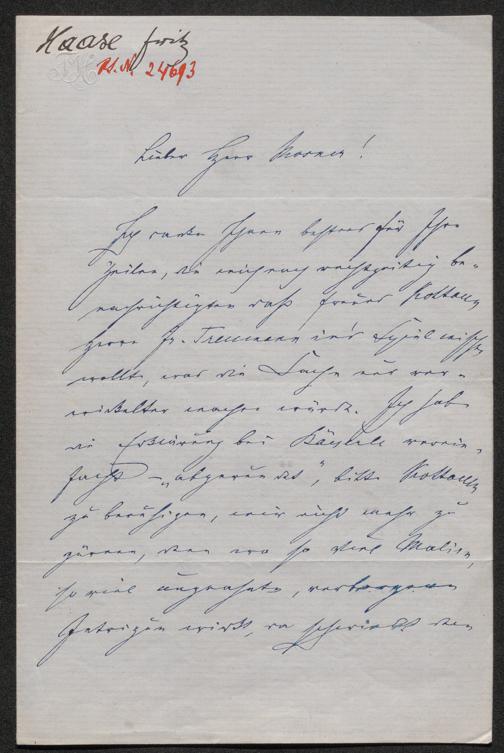 Haase Fritz
Rs. N 24693
Lieber Herr Werner!
Ich danke Ihnen bestens für Ihre
Zeilen, die mich noch rechtzeitig be-
nachrichtigten daß Freund Kottaun
Herrn Fr. Treumann in's Spiel mischen
wollte, was die Sache nur ver-
wickelter machen würde. Ich habe
die Erklärung bei verein-
facht – „abgerundet", bitte Kottaun
zu beruhigen, mir nicht mehr zu
zürnen, denn wo so viel Malice,
so viel ungeahnte, verborgene
Intriguen wirkt, da schwindet den